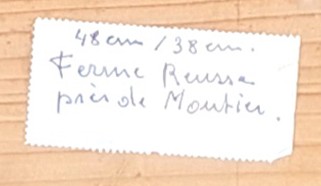 48 cm / 38 cm.
Ferme Reusse
près de Moutier.